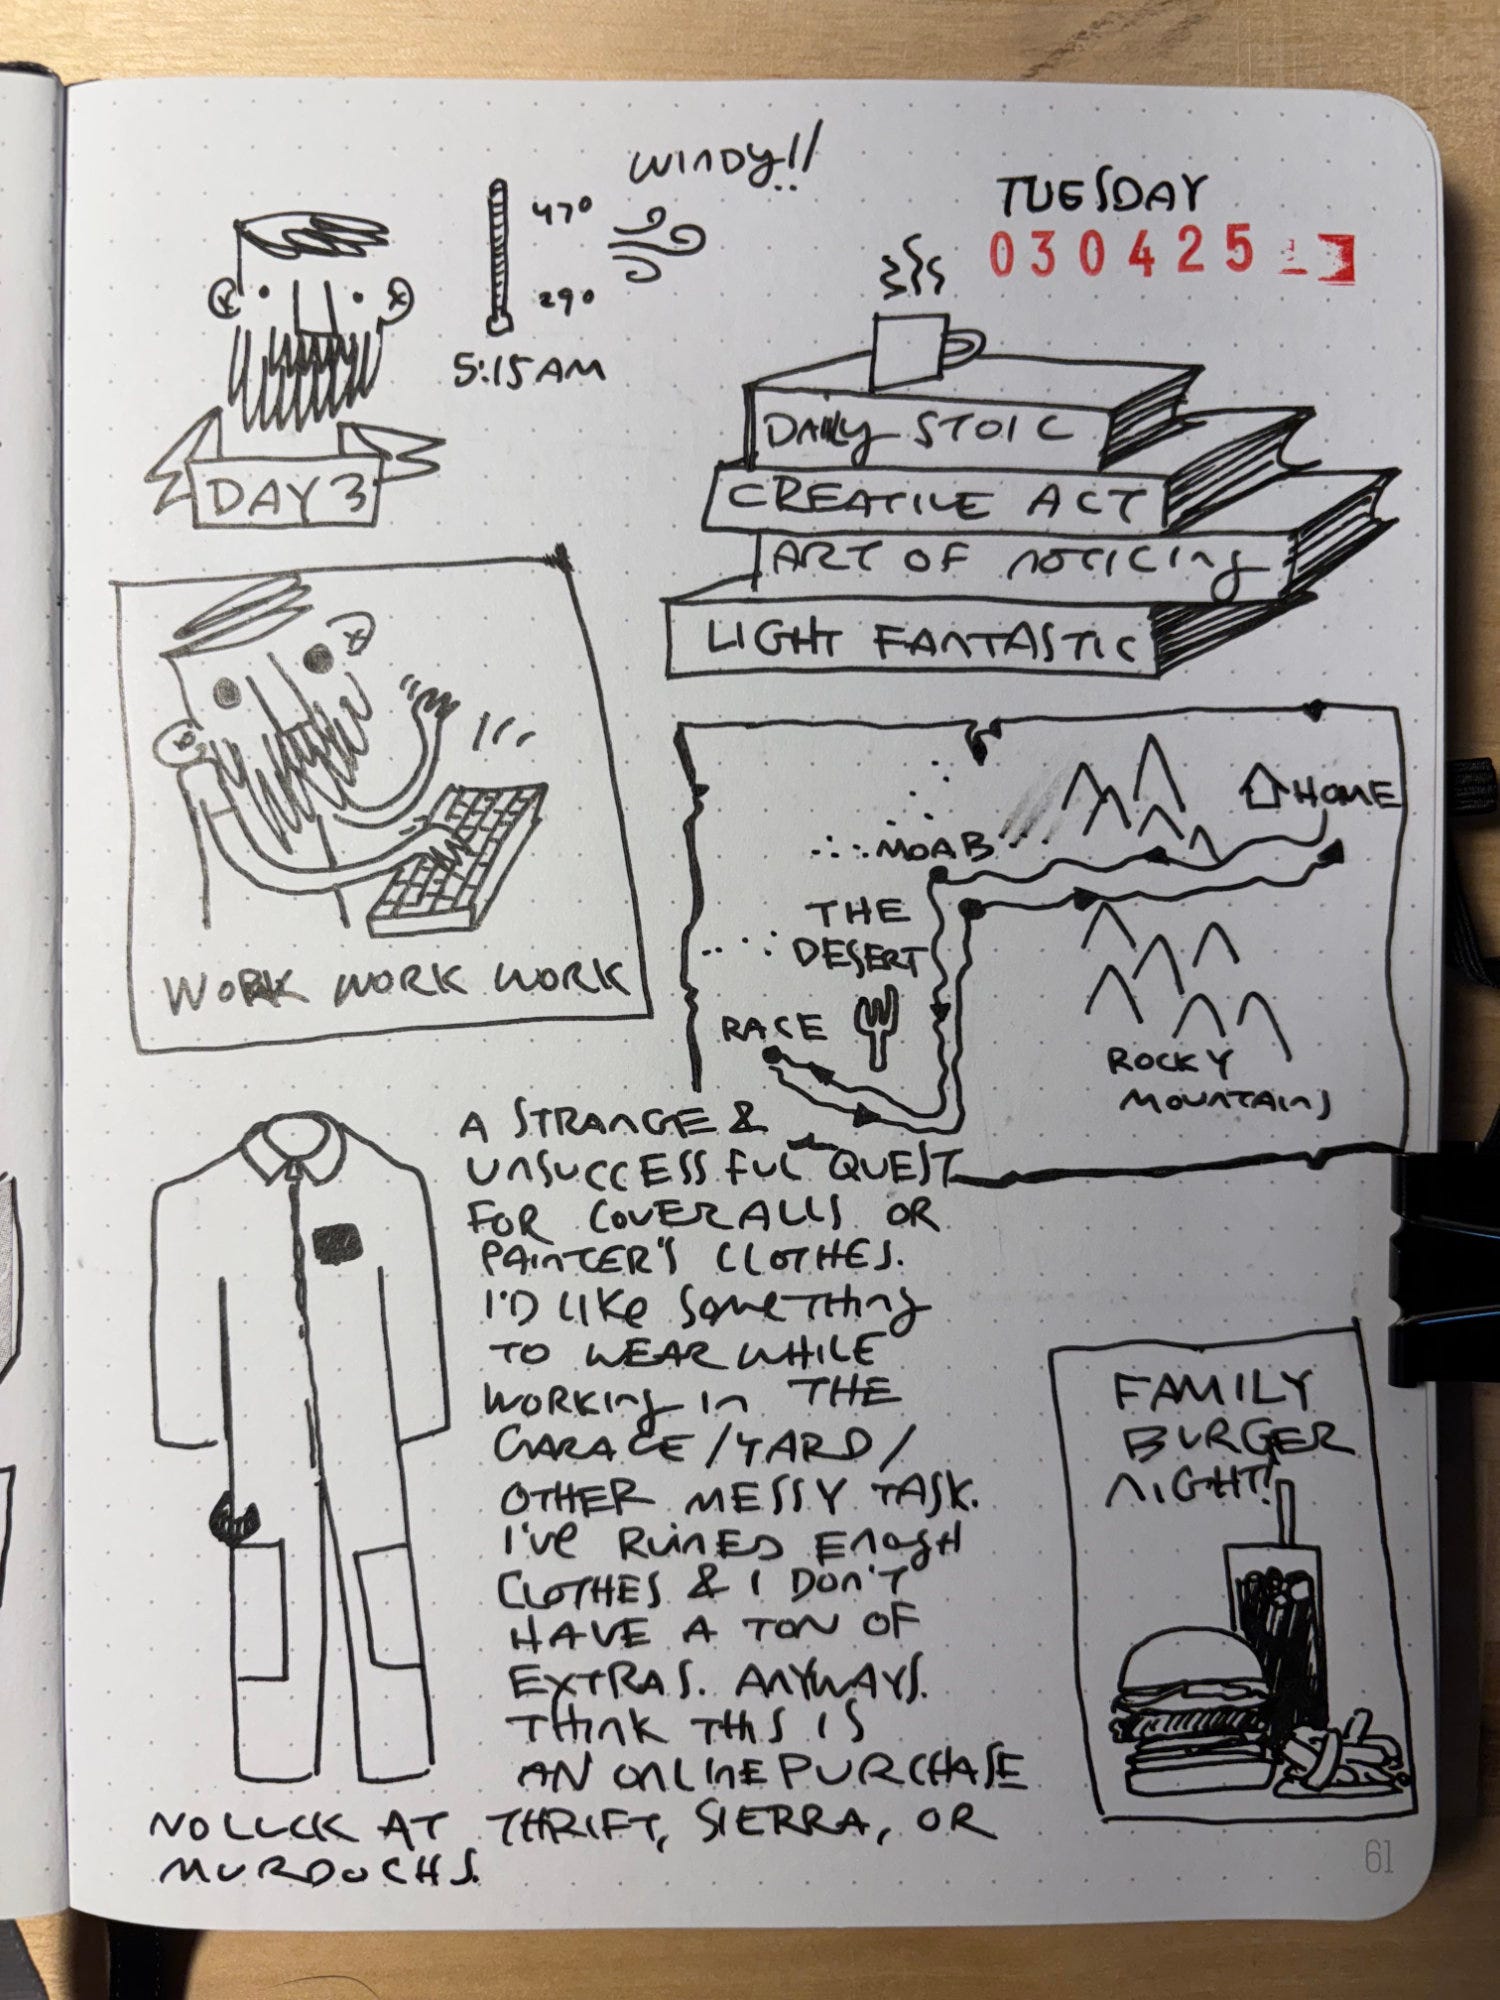 WINDY!!
47°
29°
5:15AM
TUESDAY
030425
DAY 3
DAILY STOIC
CREATIVE ACT
ART OF NOTICING
LIGHT FANTASTIC
WORK WORK WORK
HOME
MOAB
THE
DESERT
RACE
ROCKY
MOUNTAINS
A STRANGE &
UNSUCCESSFUL QUEST
FOR COVERALLS OR
PAINTER'S CLOTHES.
I'D LIKE SOMETHING
TO WEAR WHILE
WORKING IN THE
GARAGE/YARD/
OTHER MESSY TASK.
I'VE RUINED ENOGH
CLOTHES & I DON'T
HAVE A TON OF
EXTRAS. ANYWAYS.
THINK THIS IS
AN ONLINE PURCHASE
NO LUCK AT THRIFT, SIERRA, OR
MURDOCHS.
FAMILY
BURGER
NIGHT!
61